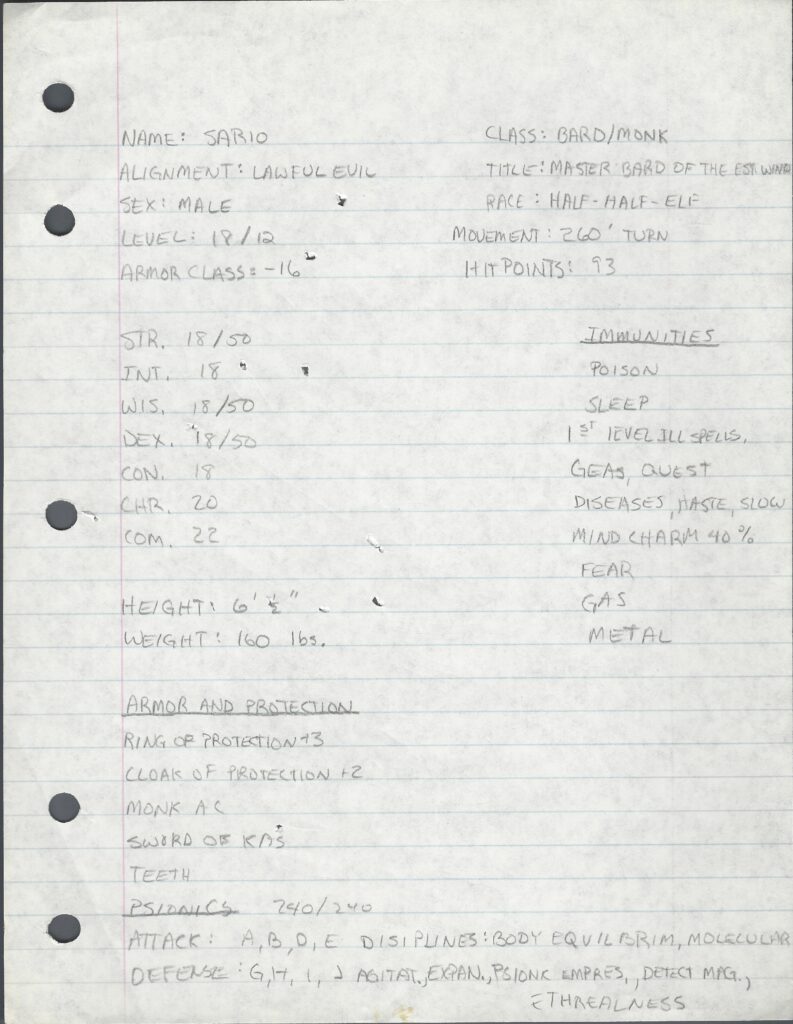 NAME: SARIO CLASS: BARD/MONK
ALIGNMENT: LAWFUL EVIL TITLE: MASTER BARD OF THE EST. WIND
SEX: MALE RACE: HALF-HALF-ELF
LEVEL: 18/12 MOVEMENT: 260' TURN
ARMOR CLASS: -16 HIT POINTS: 93
STR. 18/50 IMMUNITIES
INT. 18 POISON
WIS. 18/50 SLEEP
DEX. 18/50 1ST LEVEL ILL SPELLS.
CON. 18 GEAS, QUEST
CHR. 20 DISEASES, HASTE, SLOW
COM. 22 MIND CHARM 40%
FEAR
HEIGHT: 6' ½" GAS
WEIGHT: 160 lbs. METAL
ARMOR AND PROTECTION
RING OF PROTECTION +3
CLOAK OF PROTECTION +2
MONK AC
SWORD OF KAS
TEETH
PSIONICS 240/240
ATTACK: A, B, D, E DISIPLINES: BODY EQUILBRIM, MOLECULAR
DEFENSE: G, H, I, J AGITAT., EXPAN., PSIONC EMPRES., DETECT MAG.,
ETHREALNESS